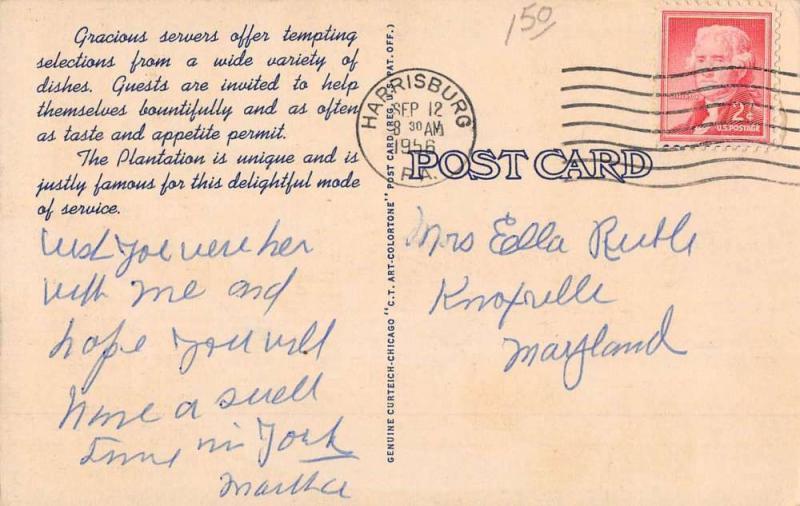 Gracious servers offer tempting
selections from a wide variety of
dishes. Guests are invited to help
themselves bountifully and as often
as taste and appetite permit.
The Plantation is unique and is
justly famous for this delightful mode
of service.
wish you were her
with me and
hope you will
have a swell
time in York
Martha
GENUINE CURTEICH-CHICAGO "C.T. ART-COLORTONE" POST CARD (REG. U.S. PAT. OFF.)
150
HARRISBURG
SEP 12
8 30 AM
1956
PA.
2¢
U.S. POSTAGE
POST CARD
Mrs Edla Ruble
Knoxville
Maryland